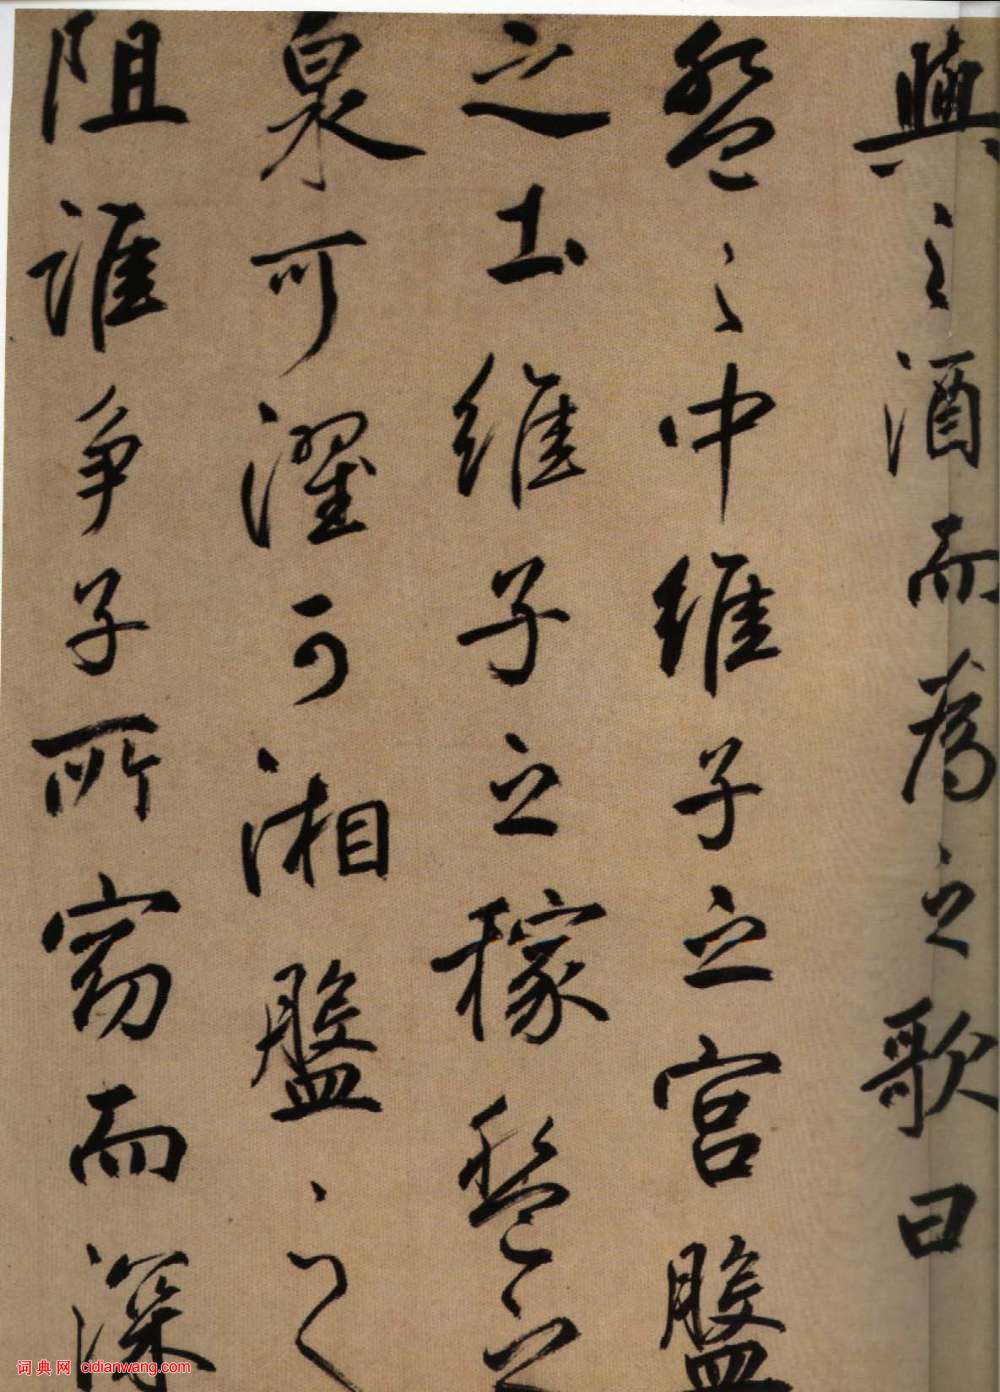 與之酒而為之歌曰
盤之中維子之宫盤
之土維子之稼盤之
泉可濯可湘盤之
阻誰争子所窈而深
词典网 cidianwang.com